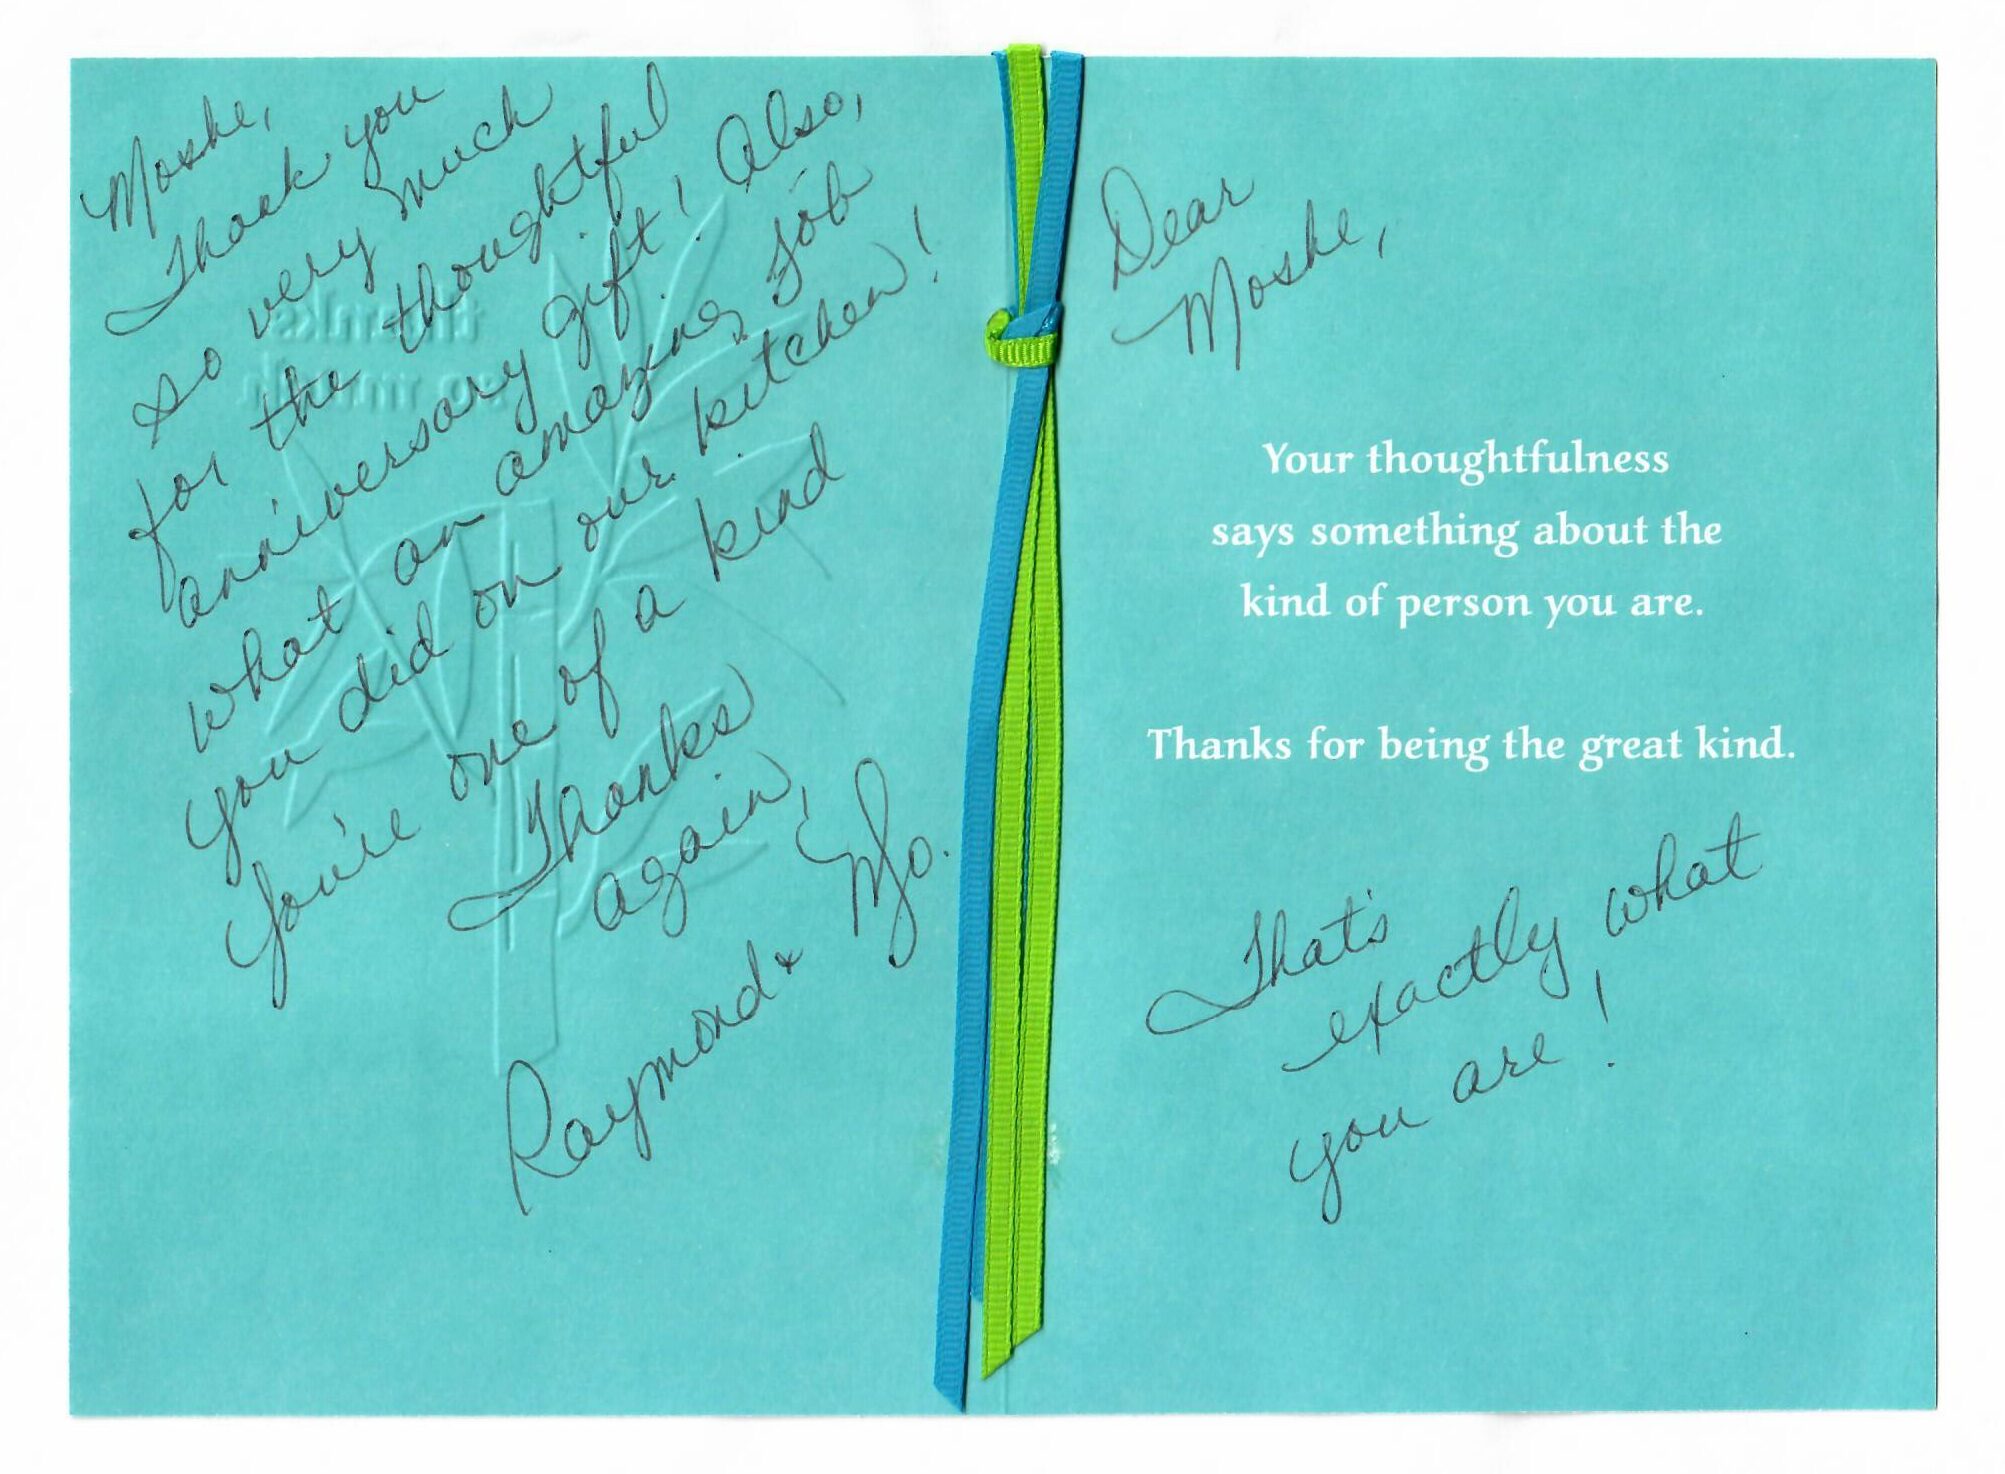 Moshe,
Thank you
so very much
for the thoughtful
anniversary gift! Also,
what an amazing job
you did on our kitchen!
You're one of a kind
Thanks
again,
Raymond &
thanks
so much
Dear
Moshe,
Your thoughtfulness
says something about the
kind of person you are.
Thanks for being the great kind.
That's
exactly what
you are!